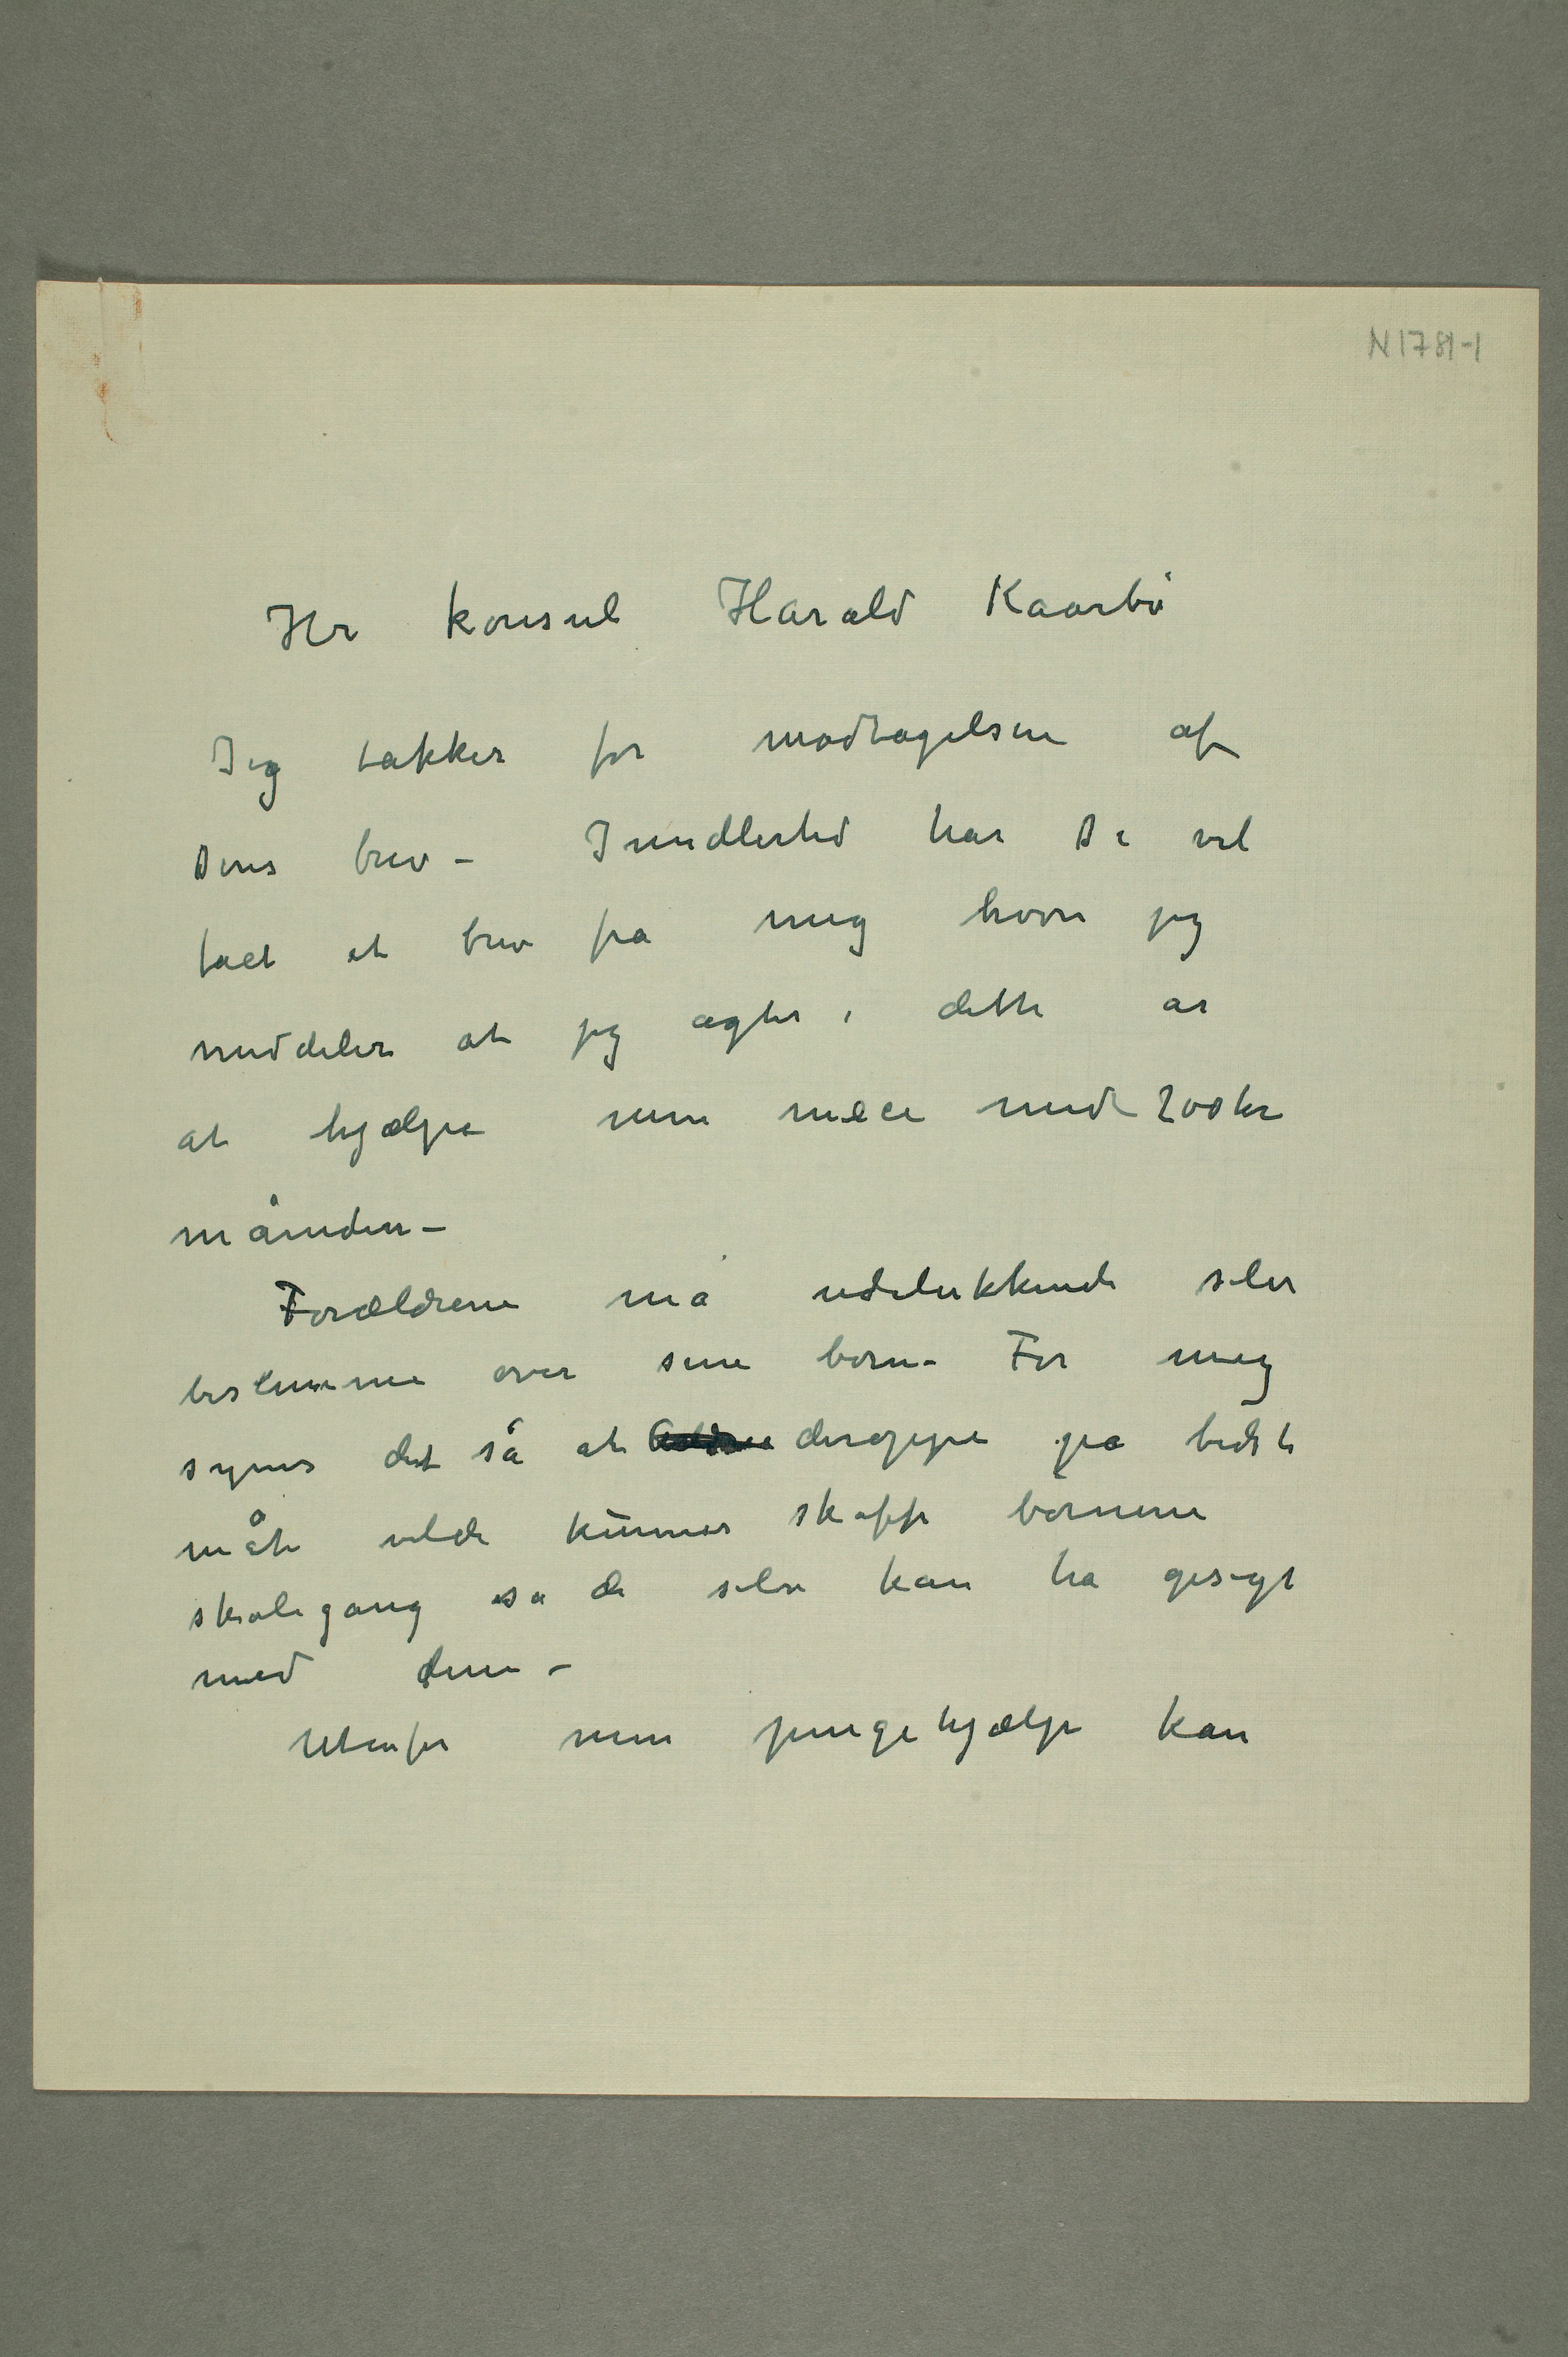 N 1781-1
Hr konsul Harald Kaarbø
Jeg takker for modtagelsen af
Deres brev – Imidlertid har De vel
fået et brev fra mig hvori jeg
meddeler at jeg agter i dette år
at hjælpe min niece med 200 kr
måneden –
Forældrene må udelukkende selv
bestemme over sine børn – For mig
synes det så at deroppe på bedste
måte vilde kunne skaffe børnene
skolegang så de selv kan ha gesigt
med dem –
Utenfor min pengehjælp kan